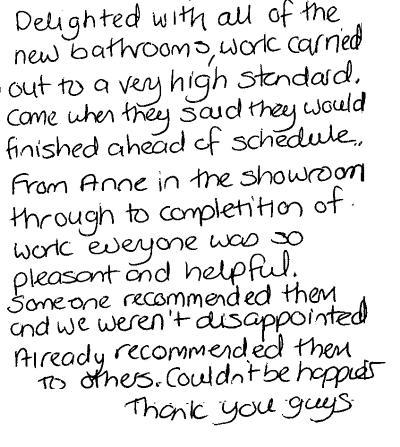 Delighted with all of the
new bathrooms, work carried
out to a very high standard.
Came when they said they would
finished ahead of schedule..
From Anne in the showroom
through to completition of
work everyone was so
pleasant and helpful.
Someone recommended them
and we weren't disappointed
Already recommended them
to others. Couldn't be happier
Thank you guys